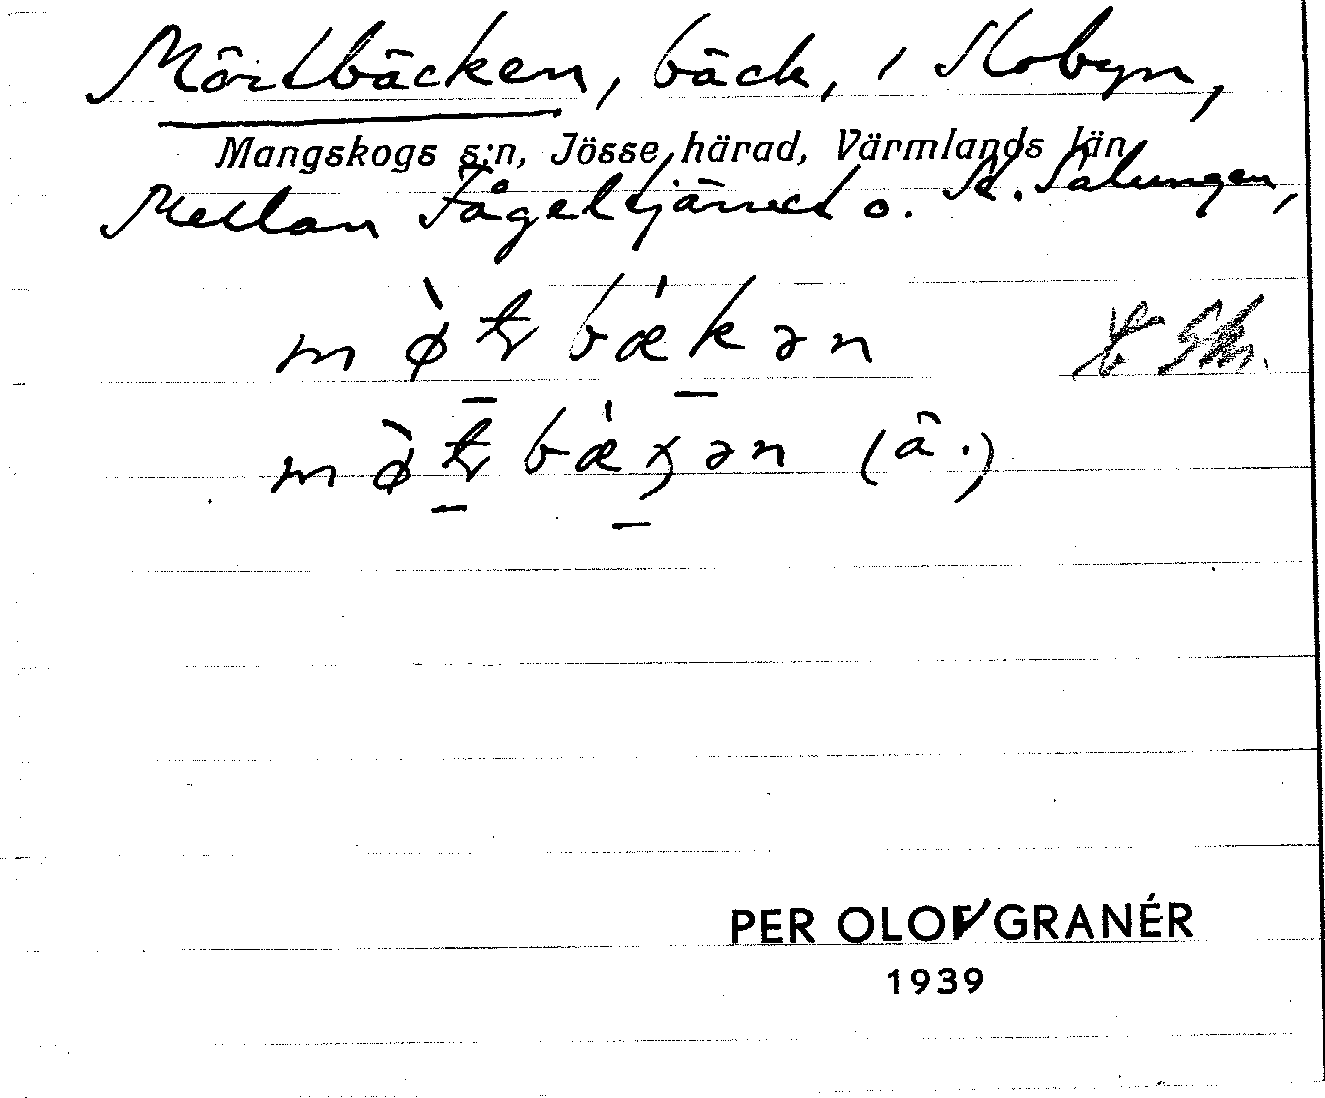 Mörtbäcken, bäck, i Slobyn,
Mangskogs s:n, Jösse härad, Värmlands län
Mellan Fågeltjärnet o. St. Salungen,
mø̀ʈbǽkən
mø̀ʈbǽχən (ä.)
PER OLOV GRANÉR
1939